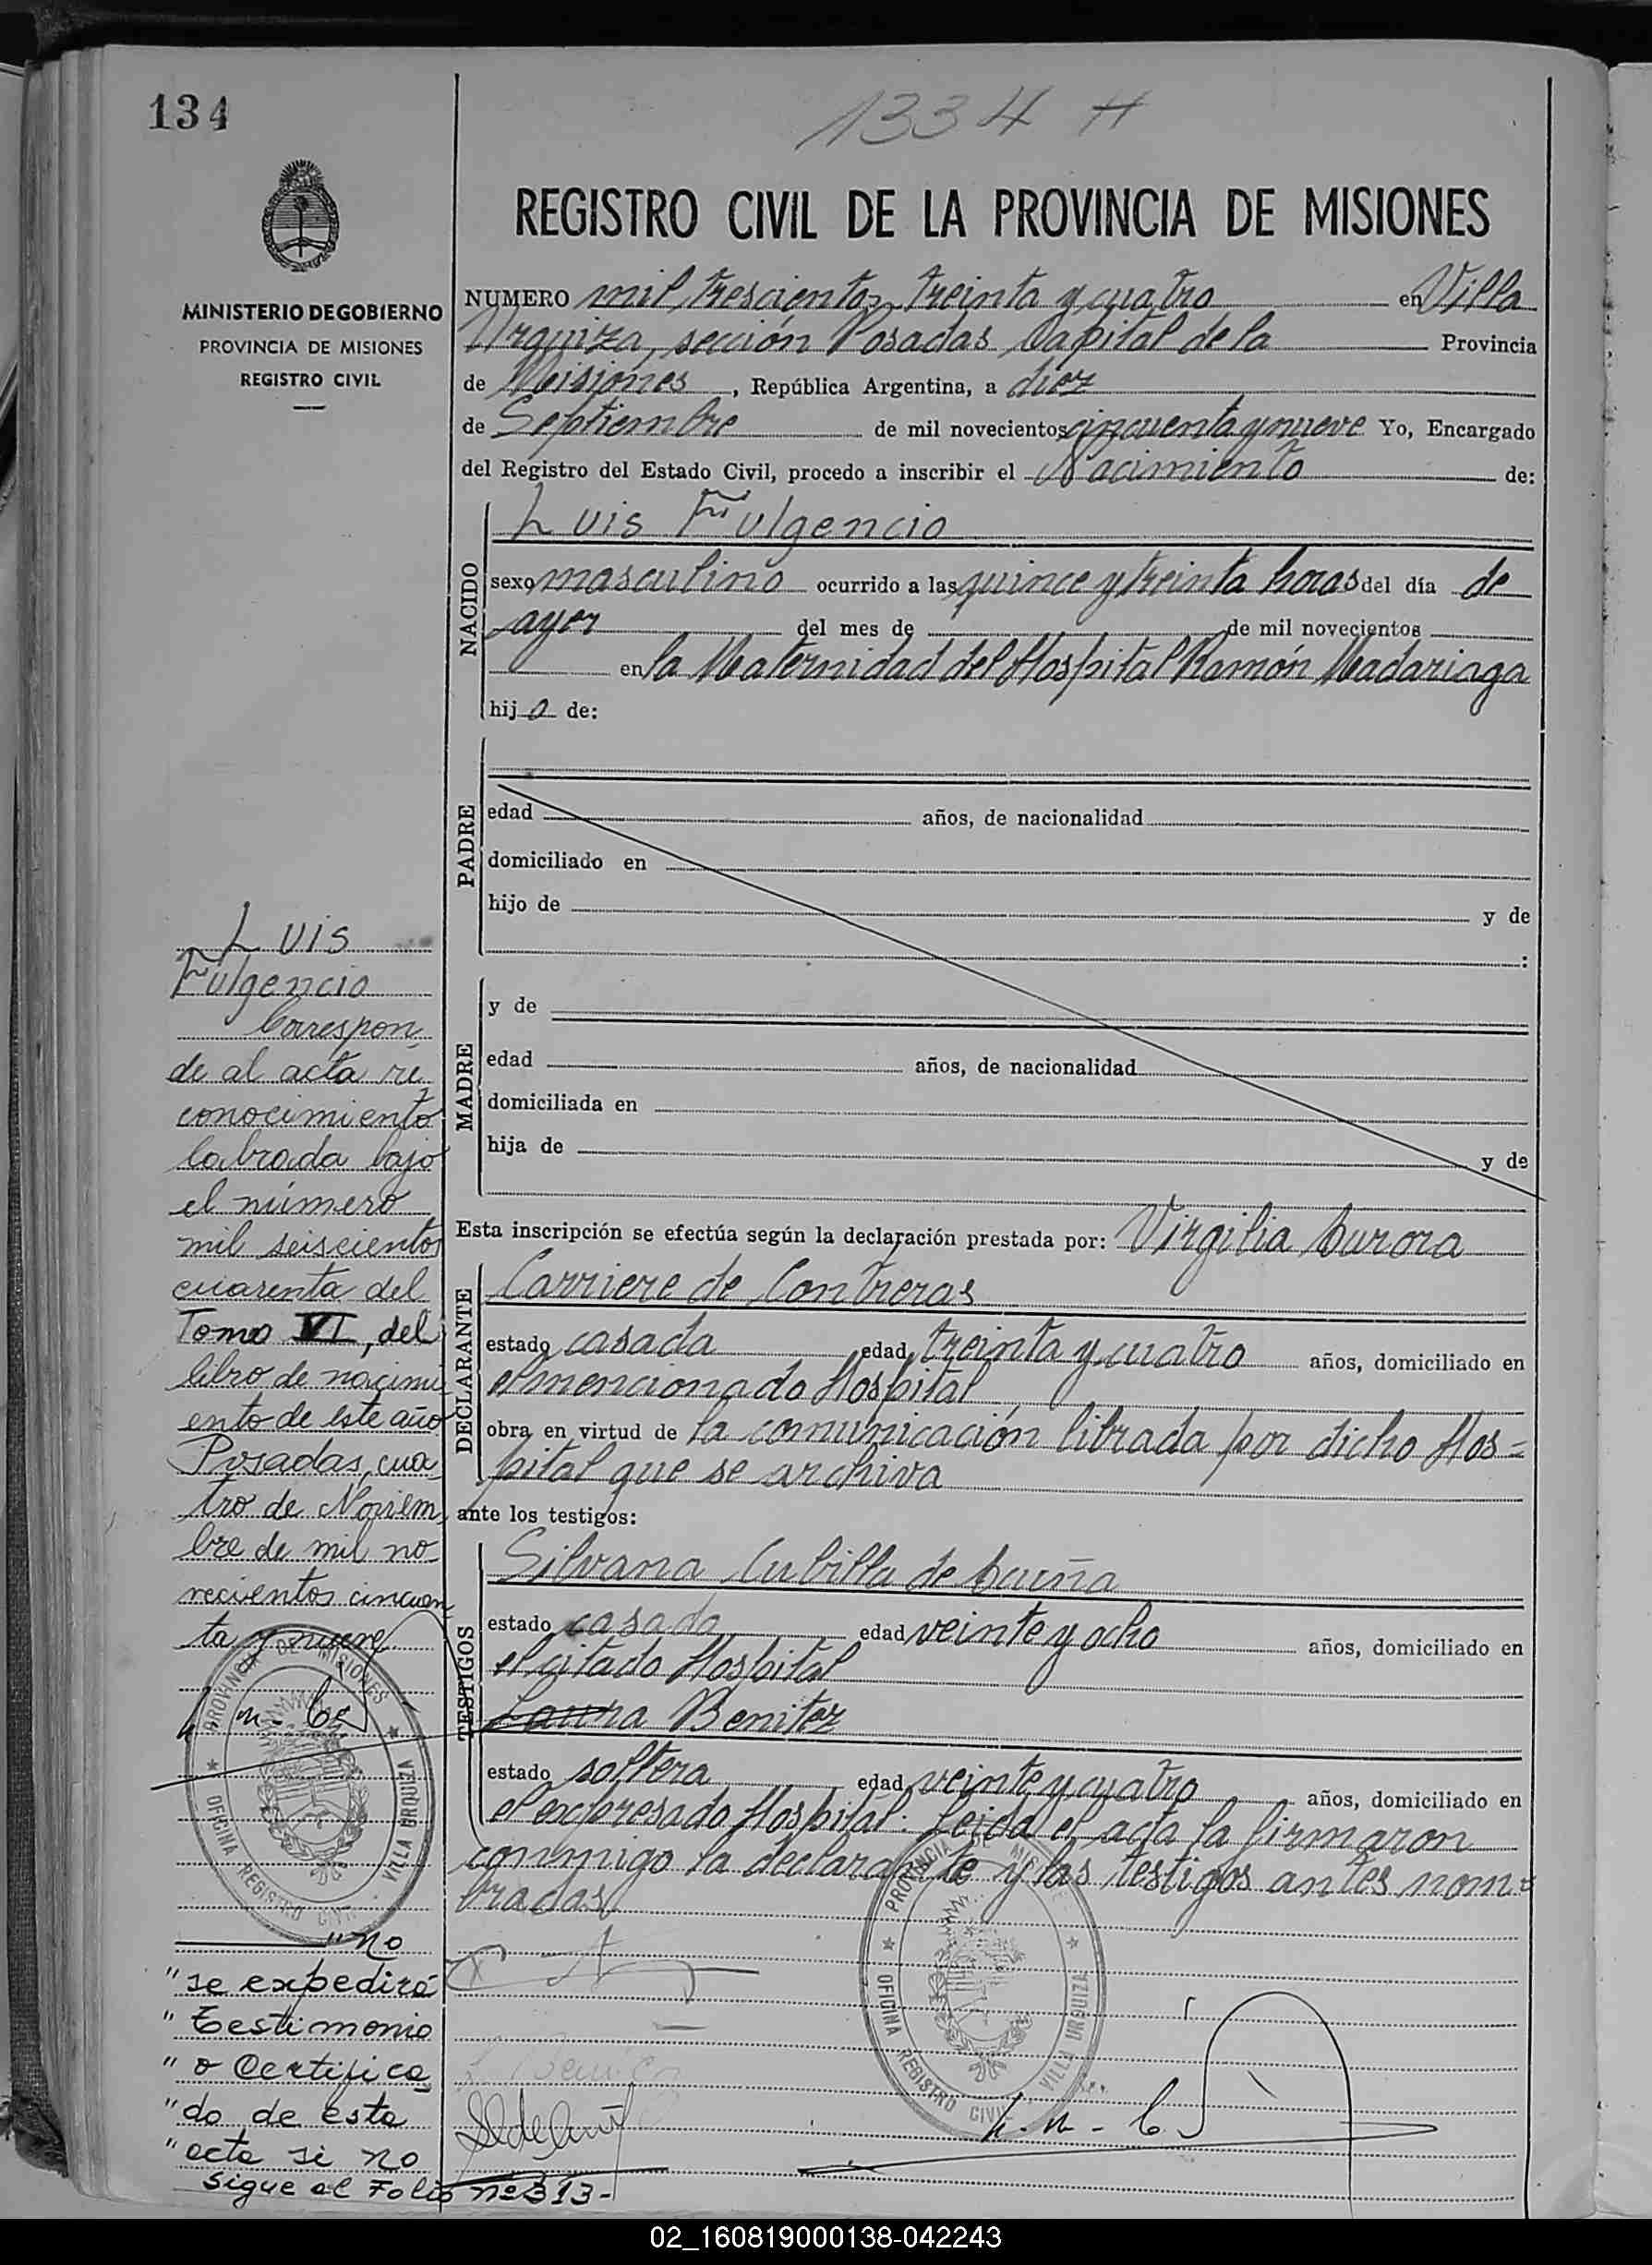 134
1334 H
REGISTRO CIVIL DE LA PROVINCIA DE MISIONES
MINISTERIO DE GOBIERNO
PROVINCIA DE MISIONES
REGISTRO CIVIL
NUMERO mil trescientos treinta y cuatro en Villa
Urquiza, sección Posadas Capital de la Provincia
de Misiones, República Argentina, a diez
de Septiembre de mil novecientos cincuenta y nueve Yo, Encargado
del Registro del Estado Civil, procedo a inscribir el Nacimiento de:
NACIDO
Luis Fulgencio
sexo masculino ocurrido a las quince y treinta horas del día de
ayer del mes de de mil novecientos
en la Maternidad del Hospital Ramón Madariaga
hijo de:
PADRE
edad años, de nacionalidad
domiciliado en
hijo de y de
:
MADRE
y de
edad años, de nacionalidad
domiciliada en
hija de y de
Esta inscripción se efectúa según la declaración prestada por: Virgilia Aurora
DECLARANTE
Carriere de Contreras
estado casada edad treinta y cuatro años, domiciliado en
el mencionado Hospital
obra en virtud de la comunicación librada por dicho Hos=
pital que se archiva
ante los testigos:
TESTIGOS
Silvana Cubilla de Acuña
estado casada edad veinte y ocho años, domiciliado en
el citado Hospital
Laura Benitez
estado soltera edad veinte y cuatro años, domiciliado en
el expresado Hospital. Leida el acta la firmaron
conmigo la declarante y las testigos antes nom=
bradas
Luis
Fulgencio
Correspon-
de al acta re-
conocimiento
labrada bajo
el número
mil seiscientos
cuarenta del
Tomo VI, del
libro de nacimi
ento de este año
Posadas, cua-
tro de Noviem
bre de mil no-
vecientos cincuen
ta y nueve
PROVINCIA DE MISIONES
OFICINA REGISTRO CIVIL
VILLA URQUIZA
"no
"se expedirá
"Testimonio
"o Certifica-
"do de esta
"acta si no
sigue al Folio nº 313-
PROVINCIA DE MISIONES
OFICINA REGISTRO CIVIL
VILLA URQUIZA
02_160819000138-042243